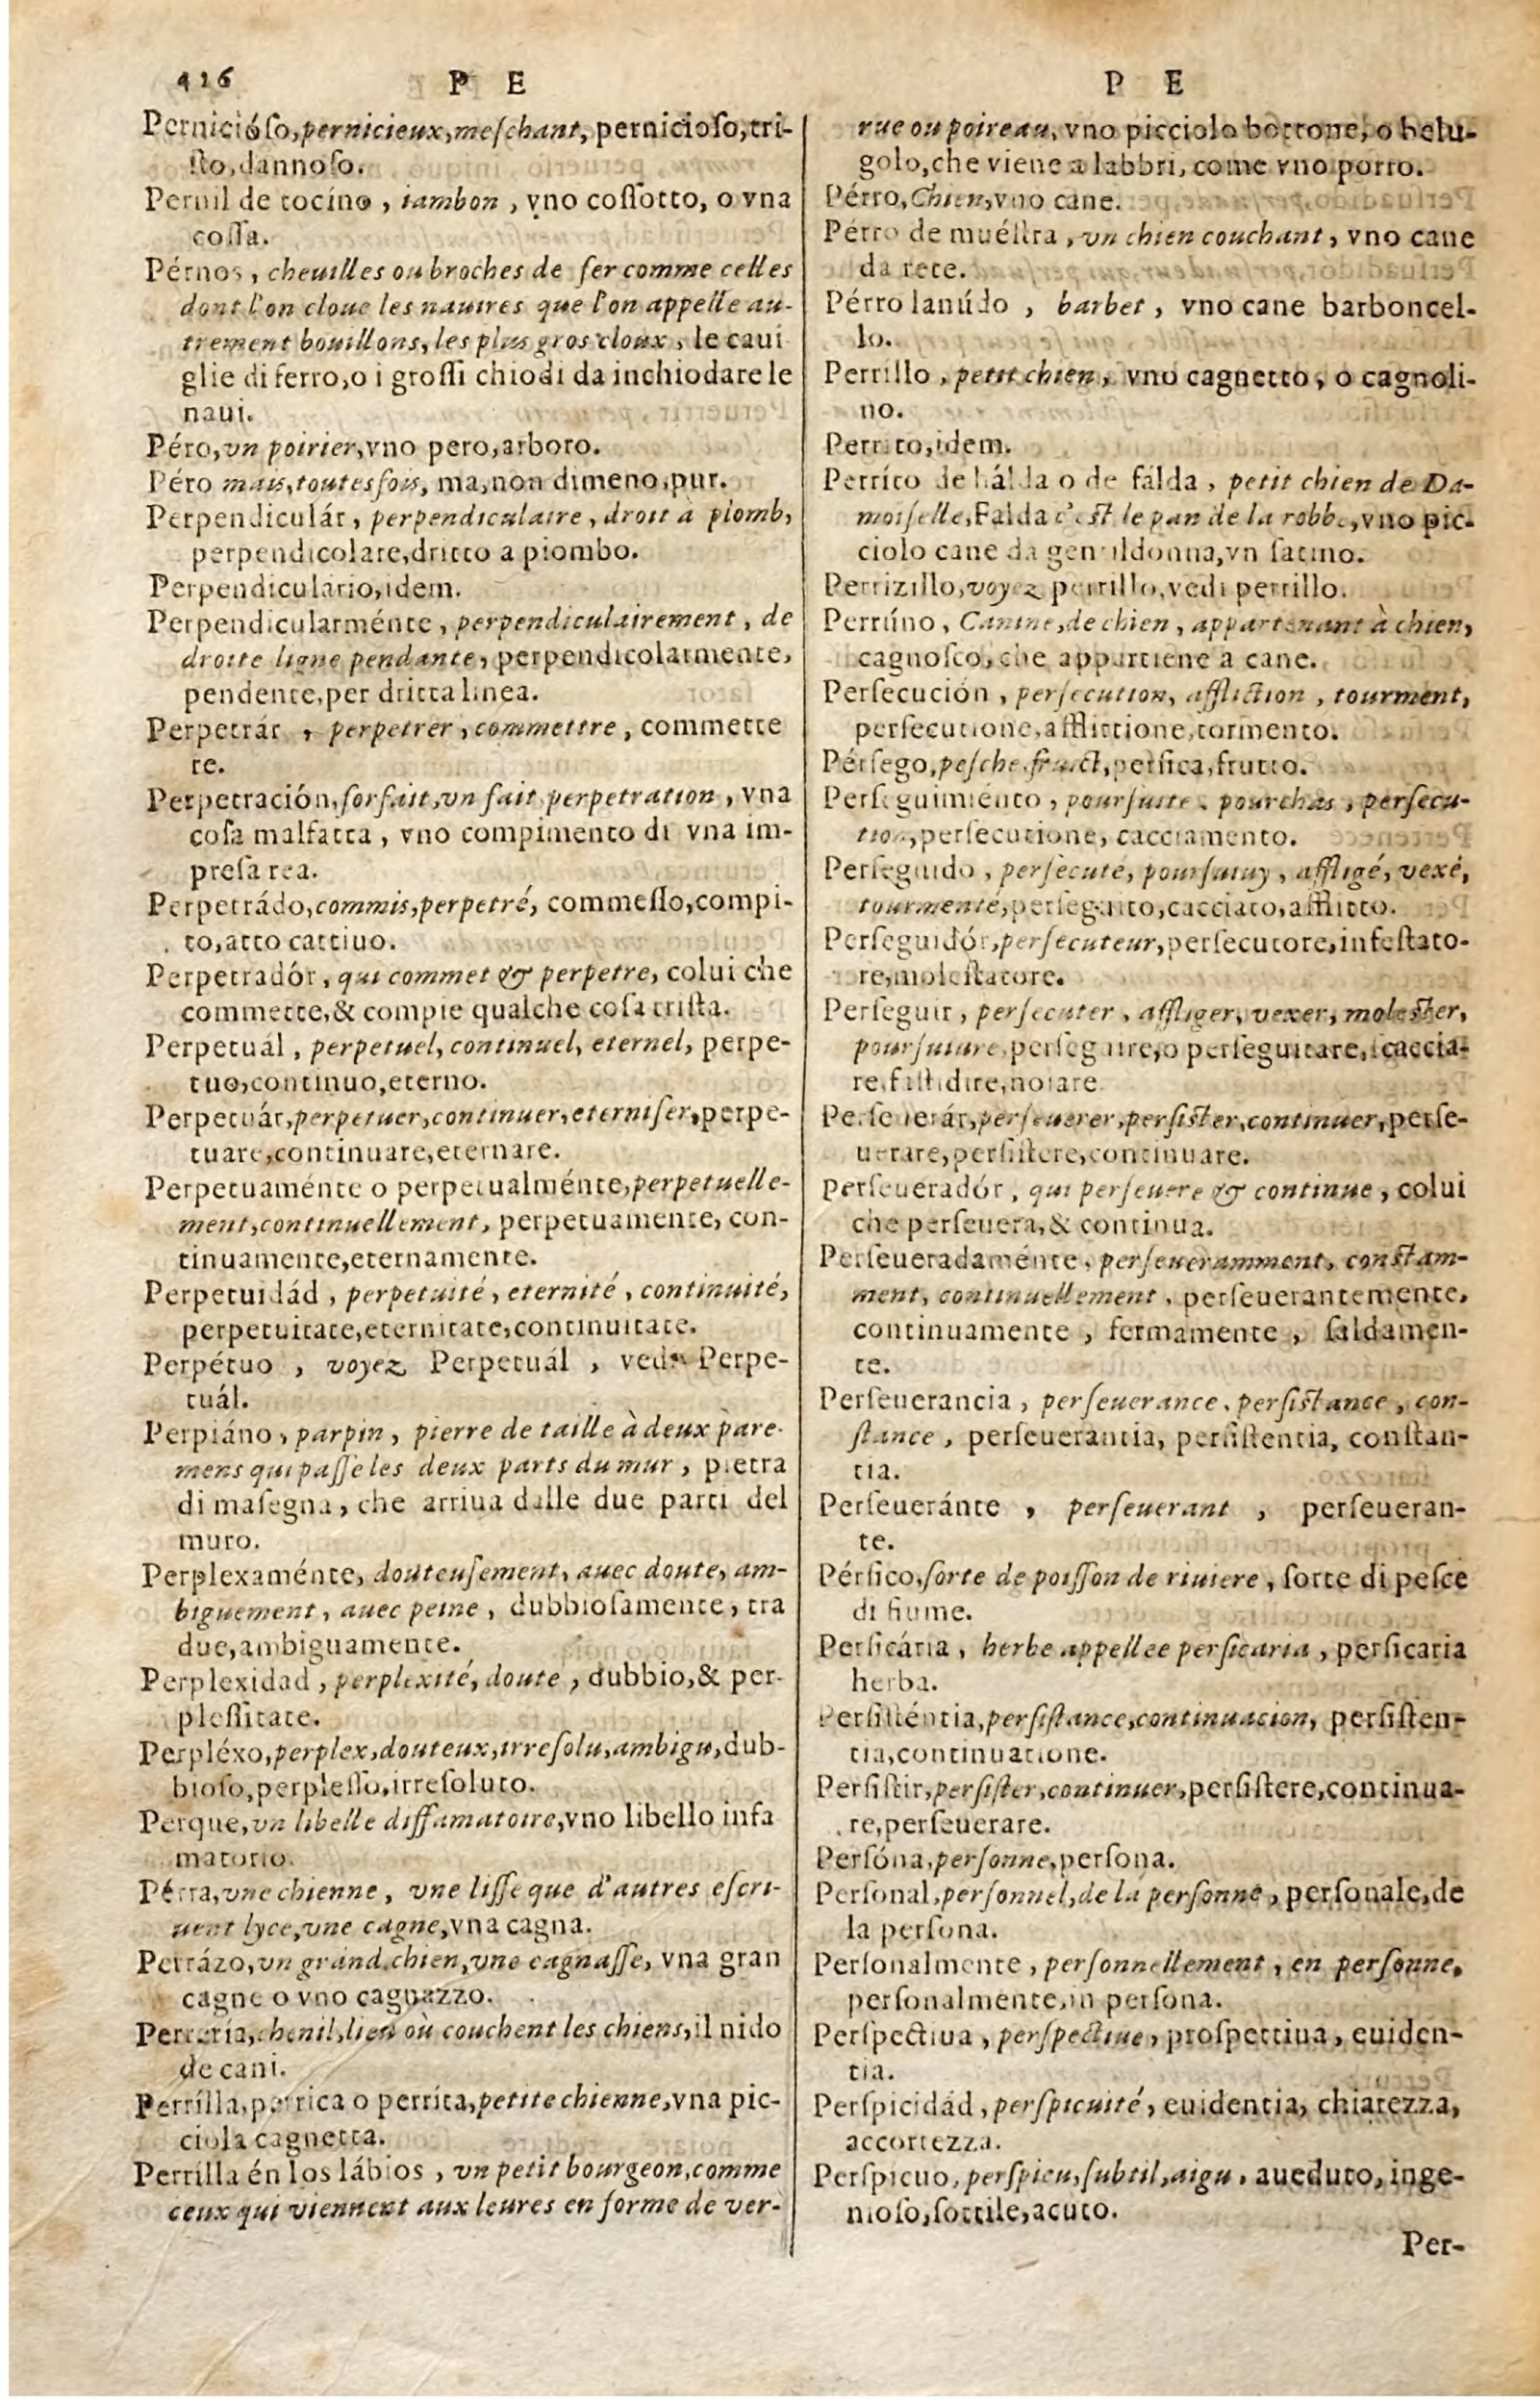 426 P E
Pernicióſo,pernicieux,meſchant, pernicioſo,tri-
ſto,dannoſo.
Pernil de tocíno , iambon , vno coſſotto, o vna
coſſa.
Pérnos , cheuilles ou broches de fer comme celles
dont l'on cloue les nauires que l'on appelle au-
trement bouillons, les plus gros cloux , le caui
glie di ferro,o i groſſi chiodi da inchiodare le
naui.
Péro,vn poirier,vno pero,arboro.
Péro mais,toutesfois, ma,non dimeno,pur.
Perpendiculár , perpendiculaire , droit à plomb,
perpendicolare,dritto a piombo.
Perpendiculario,idem.
Perpendicularménte , perpendiculairement , de
droite ligne pendante, perpendicolarmente,
pendente,per dritta linea.
Perpetrár , perpetrer , commettre , commette
re.
Perpetración,forfait,vn fait perpetration , vna
coſa malfatta , vno compimento di vna im-
preſa rea.
Perpetrádo,commis,perpetré, commeſſo,compi-
to,atto cattiuo.
Perpetradór , qui commet & perpetre, colui che
commette,& compie qualche coſa triſta.
Perpetuál , perpetuel, continuel, eternel, perpe-
tuo,continuo,eterno.
Perpetuár,perpetuer,continuer,eterniſer,perpe-
tuare,continuare,eternare.
Perpetuaménte o perpetualménte,perpetuelle-
ment,continuellement, perpetuamente, con-
tinuamente,eternamente.
Perpetuidád , perpetuité , eternité , continuité,
perpetuitate,eternitate,continuitate.
Perpétuo , voyez Perpetuál , vedi Perpe-
tuál.
Perpiáno , parpin , pierre de taille à deux pare-
mens qui paſſe les deux parts du mur , pietra
di maſegna , che arriua dalle due parti del
muro.
Perplexaménte, douteuſement, auec doute, am-
biguement , auec peine , dubbioſamente , tra
due,ambiguamente.
Perplexidad , perplexité, doute , dubbio,& per-
pleſſitate.
Perpléxo,perplex,douteux,irreſolu,ambigu,dub-
bioſo,perpleſſo,irreſoluto.
Perque,vn libelle diffamatoire,vno libello infa
matorio.
Pérra,vne chienne , vne liſſe que d'autres eſcri-
uent lyce,vne cagne,vna cagna.
Perrázo,vn grand chien,vne cagnaſſe, vna gran
cagne o vno cagnazzo.
Perrería,chenil,lieu où couchent les chiens,il nido
de cani.
Perrílla,perrica o perríta,petite chienne,vna pic-
ciola cagnetta.
Perrílla én los lábios , vn petit bourgeon,comme
ceux qui viennent aux leures en forme de ver-
P E
rue ou poireau, vno picciolo bottone, o belu-
golo,che viene a labbri, come vno porro.
Pérro,Chien,vno cane.
Pérro de muéſtra , vn chien couchant , vno cane
da rete.
Pérro lanúdo , barbet , vno cane barboncel-
lo.
Perrillo , petit chien , vno cagnetto, o cagnoli-
no.
Perrito,idem.
Perríto de hálda o de fálda , petit chien de Da-
moiſelle,Falda c'eſt le pan de la robbe,vno pic-
ciolo cane da gentildonna,vn fatino.
Perrizillo,voyez perrillo,vedi perrillo.
Perrúno , Canine,de chien , appartenant à chien,
cagnoſco, che appartiene a cane.
Perſecución , perſecution, affliction , tourment,
perſecutione,afflittione,tormento.
Pérſego,peſche,fruict,perſica,frutto.
Perſeguimiénto , pourſuite , pourchas , perſecu-
tion,perſecutione, cacciamento.
Perſeguido , perſecuté, pourſuiuy , affligé, vexé,
tourmenté,perſeguito,cacciato,afflitto.
Perſeguidór,perſecuteur,perſecutore,infeſtato-
re,moleſtatore.
Perſeguir , perſecuter , affliger, vexer, moleſter,
pourſuiure,perſeguire,o perſeguitare, ſcaccia-
re,faſtidire,noiare
Perſeuerár,perſeuerer,perſiſter,continuer,perſe-
uerare,perſiſtere,continuare.
Perſeueradór , qui perſeuere & continue , colui
che perſeuera,& continua.
Perſeueradaménte , perſeueramment, conſtam-
ment, continuellement , perſeuerantemente,
continuamente , fermamente , ſaldamen-
te.
Perſeuerancia , perſeuerance , perſiſtance , con-
ſtance , perſeuerantia, perſiſtentia, conſtan-
tia.
Perſeueránte , perſeuerant , perſeueran-
te.
Pérſico,ſorte de poiſſon de riuiere , ſorte di peſce
di fiume.
Perſicária , herbe appellee perſicaria , perſicaria
herba.
Perſiſténtia,perſiſtance,continuacion, perſiſten-
tia,continuatione.
Perſiſtir,perſiſter,continuer,perſiſtere,continua-
re,perſeuerare.
Perſóna,perſonne,perſona.
Perſonal,perſonnel,de la perſonne , perſonale,de
la perſona.
Perſonalmente , perſonnellement , en perſonne,
perſonalmente,in perſona.
Perſpectiua , perſpectiue , proſpettiua , euiden-
tia.
Perſpicidád , perſpicuité , euidentia, chiarezza,
accortezza.
Perſpicuo , perſpicu,ſubtil,aigu , aueduto, inge-
nioſo,ſottile,acuto.
Per-